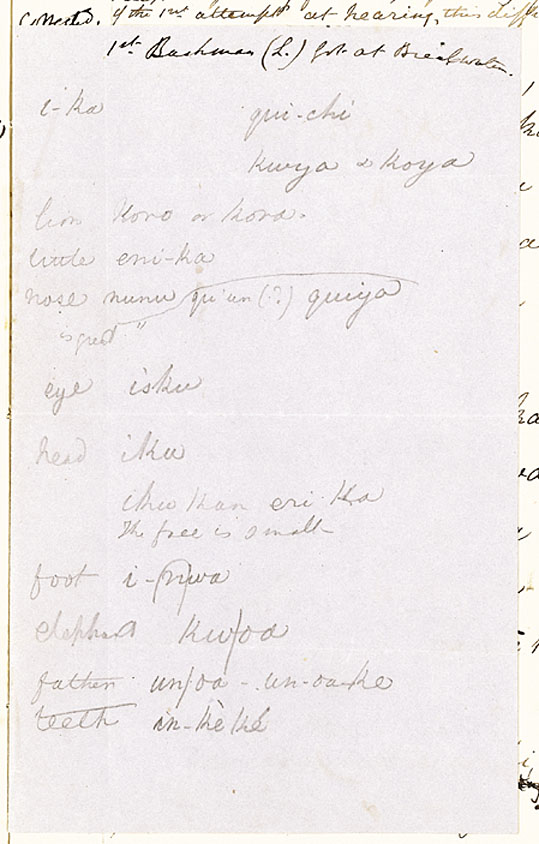 Corrected. of the 1st attempts at hearing, this
1st Bushman (L.) got at Breakwater.
i-ka qui-chi
kwya & koya
lion Koro or kora.
little eni-ka
nose nunu qu'un (.?) quiya
is great "
eye isku
head iku
iku kan eri ka
The face is small
foot i-nwa
elephant kw/oa
father un/oa - un-oa-ke
teeth in-kèké